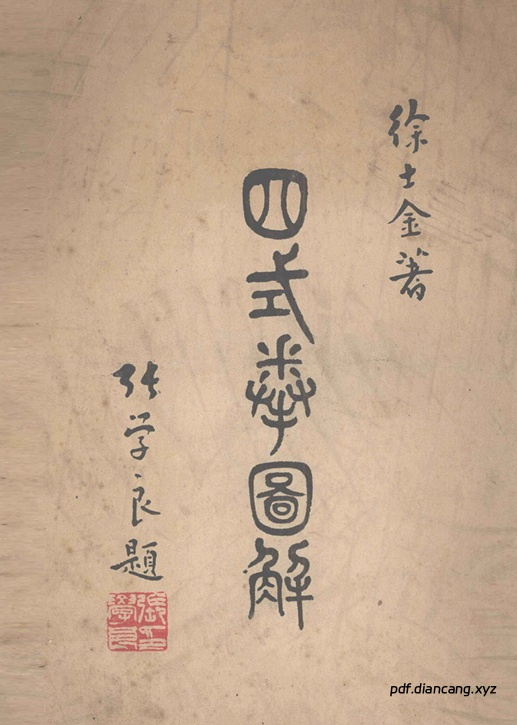 徐士金著
四式拳圖解
张学良題
張學良印
pdf.diancang.xyz